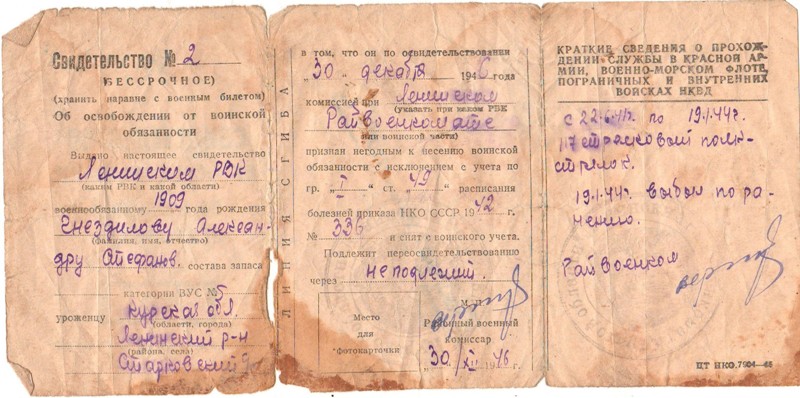 Свидетельство № 2
(БЕССРОЧНОЕ)
(хранить наравне с военным билетом)
Об освобождении от воинской
обязанности
Выдано настоящее свидетельство
Ленинском РВК
(каким РВК и какой области)
военнообязанному 1909 года рождения
Гнездилову Алексан-
(фамилия, имя, отчество)
дру Стефанов. состава запаса
категории ВУС № 5
уроженцу Курской обл.
(области, города)
Ленинский р-н
(района, села)
Старковский
ЛИНИЯ СГИБА
в том, что он по освидетельствовании
„30" декабря 1946 года
комиссией при Ленинском
(указать при каком РВК
Райвоенкомате
или воинской части)
признан негодным к несению воинской
обязанности с исключением с учета по
гр. „I" ст. „49" расписания
болезней приказа НКО СССР 1942 г.
№ 336 и снят с воинского учета.
Подлежит переосвидетельствованию
через не подлежит.
Место
для
фотокарточки
Районный военный
комиссар
„30/XII 46
КРАТКИЕ СВЕДЕНИЯ О ПРОХОЖ-
ДЕНИИ СЛУЖБЫ В КРАСНОЙ АР-
МИИ, ВОЕННО-МОРСКОМ ФЛОТЕ,
ПОГРАНИЧНЫХ И ВНУТРЕННИХ
ВОЙСКАХ НКВД
С 22.6.41г. по 19.1.44г.
17 стрелковый полк-
стрелок.
19.1.44г. выбыл по ра-
нению.
Райвоенком
ЦТ НКО. 7904—45